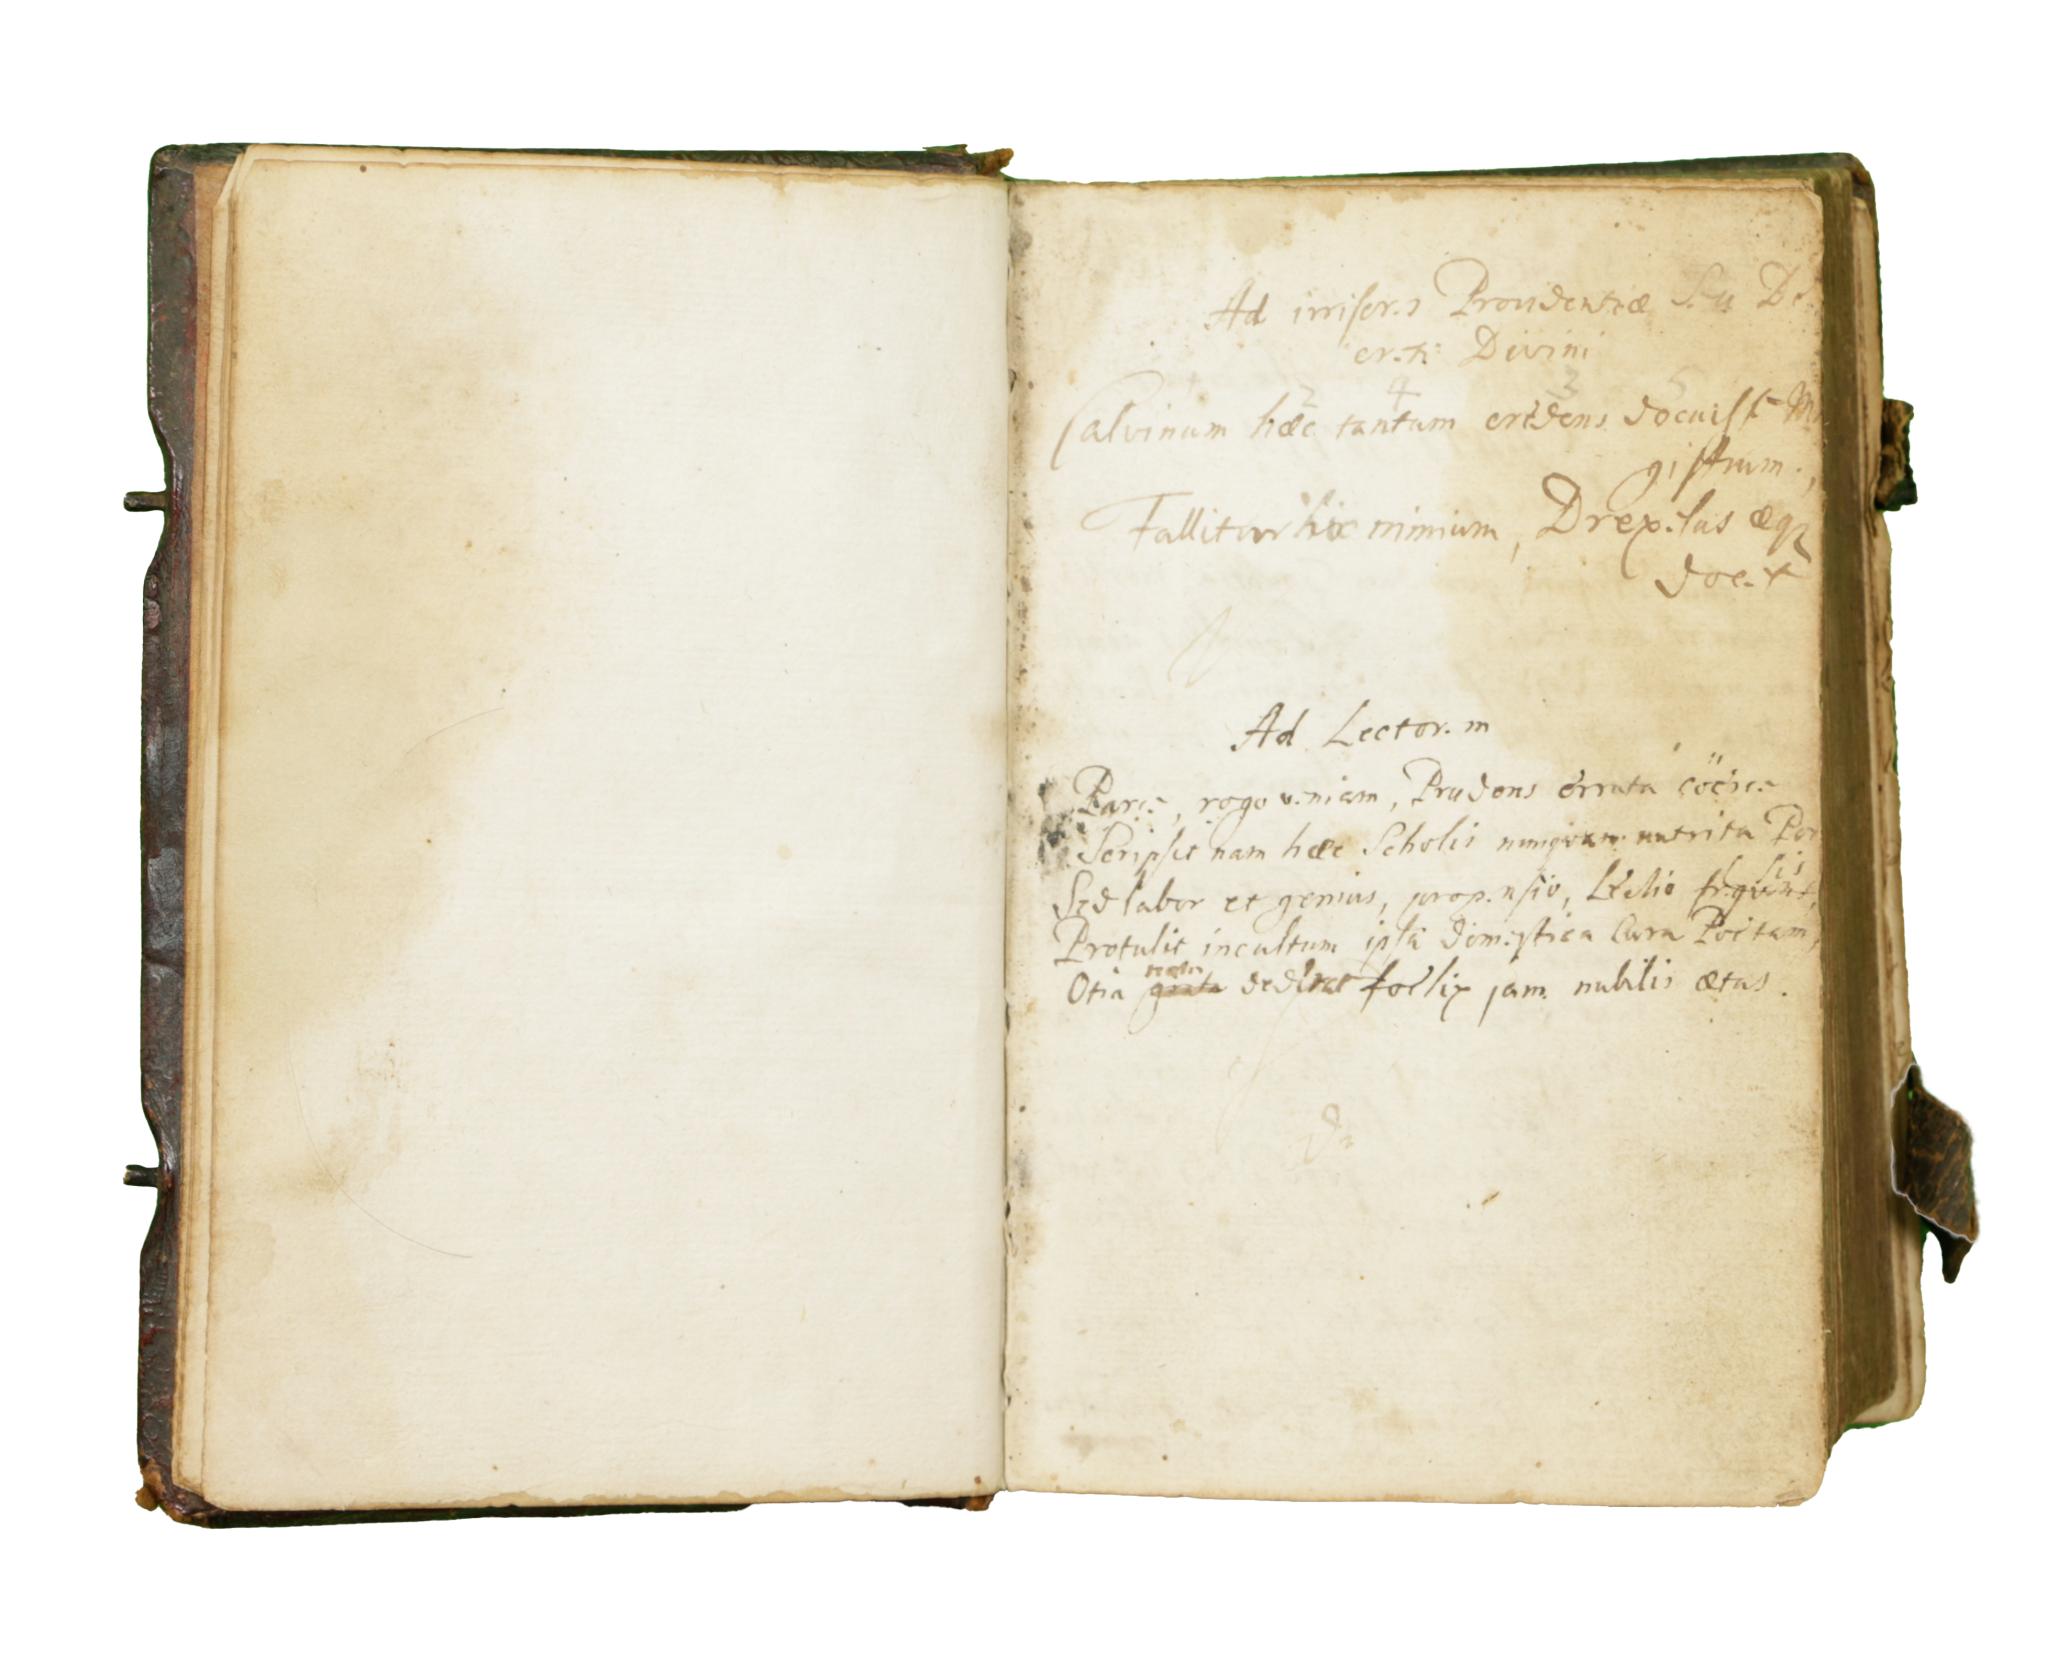 Ad irrisor.s Providentiæ S.u De
cr.ti Divini
Calvinum hæc tantum credens docuiss.
gistrum.,
Fallitur hic nimium, Drex.lius æq3
doc.t
Ad Lector.m
Parc., rogo v.niam, Prudens errata cöerc.
Scripsit nam hæc Scholis nunquam nutrita Poe
sis
Sed labor et genius, prop.nsio, Lectio fr.quens,
Protulit incultum ipsa dom.stica Cura Poetam,
Otia dedit foelix jam nubilis ætas.